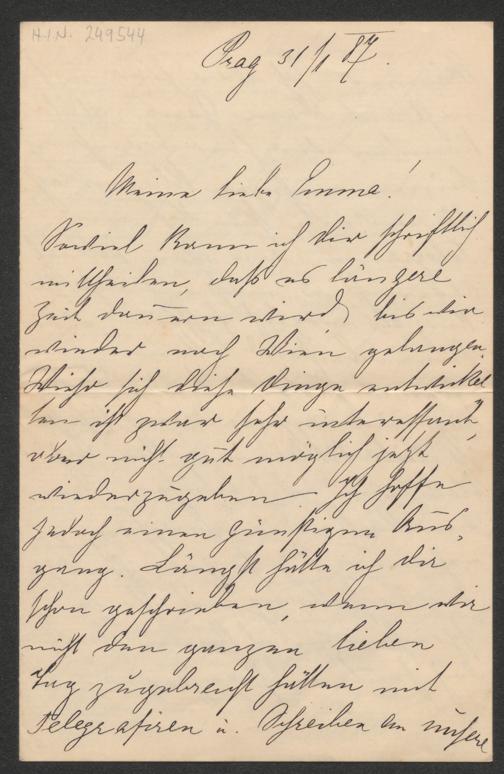 H.I.N. 249544
Prag 31/1 87.
Meine liebe Emma!
Soviel kann ich dir schriftlich
mittheilen, daß es längere
Zeit dauern wird, bis wir
wieder nach Wien gelangen
Wie sich diese Dinge entwickel
ten ist zwar sehr interessant,
aber nicht gut möglich jetzt
wiederzugeben. Ich hoffe
jedoch einen günstigen Aus,
gang. Längst hätte ich dir
schon geschrieben, wenn wir
nicht den ganzen lieben
Tag zugebracht hätten mit
Telegrafiren u. Schreiben an unsere